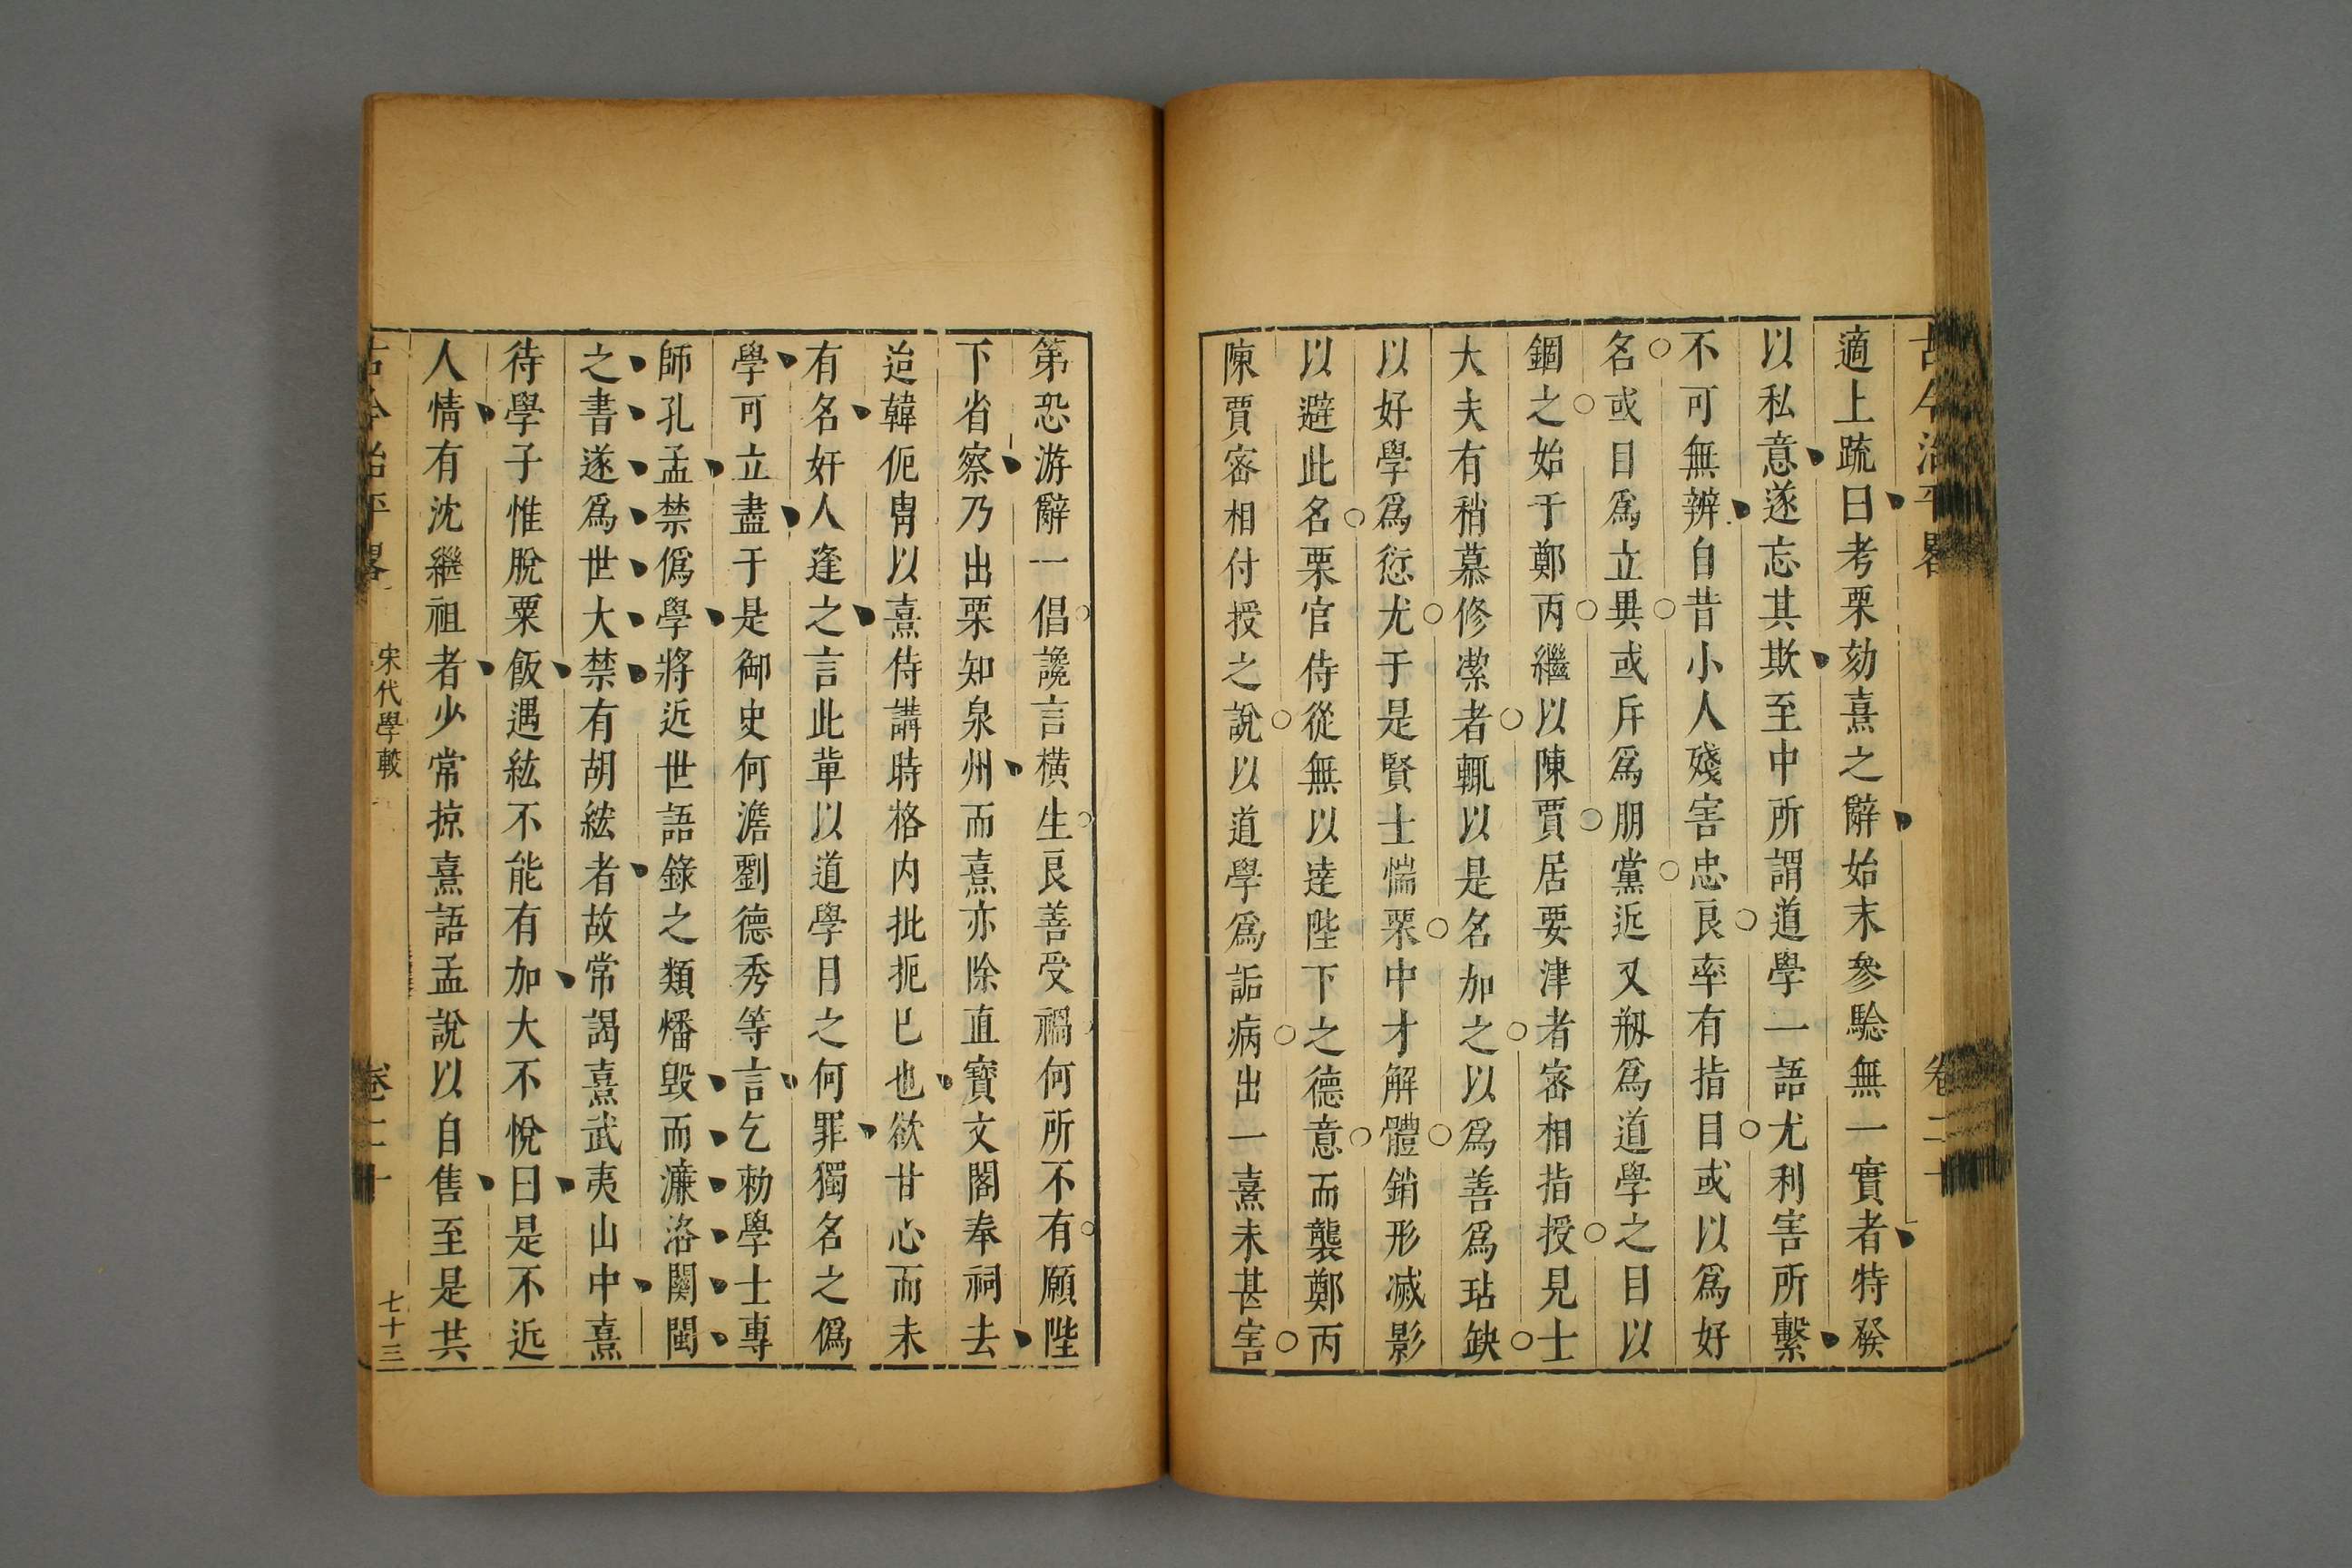 古今治平畧 卷二十
適上疏曰考栗劾熹之辭始末參驗無一實者特發
以私意遂忘其欺至中所謂道學一語尤利害所繫
不可無辨自昔小人殘害忠良率有指目或以爲好
名或目爲立異或斥爲朋黨近又剏爲道學之目以
錮之始于鄭丙繼以陳賈居要津者密相指授見士
大夫有稍慕修潔者輒以是名加之以爲善爲玷缺
以好學爲愆尤于是賢士惴慄中才解體銷形滅影
以避此名栗官侍從無以逹陛下之德意而襲鄭丙
陳賈密相付授之說以道學爲詬病出一熹未甚害
第恐游辭一倡讒言橫生良善受禍何所不有願陛
下省察乃出栗知泉州而熹亦除直寶文閣奉祠去
迨韓侂胄以熹侍講時格内批扼巳也欲甘心而未
有名奸人逢之言此輩以道學目之何罪獨名之僞
學可立盡于是御史何澹劉德秀等言乞勑學士專
師孔孟禁僞學將近世語錄之類燔毁而濂洛關閩
之書遂爲世大禁有胡紘者故常謁熹武夷山中熹
待學子惟脫粟飯遇紘不能有加大不悅曰是不近
人情有沈繼祖者少常掠熹語孟說以自售至是共
古今治平畧 宋代學較 卷二十 七十三